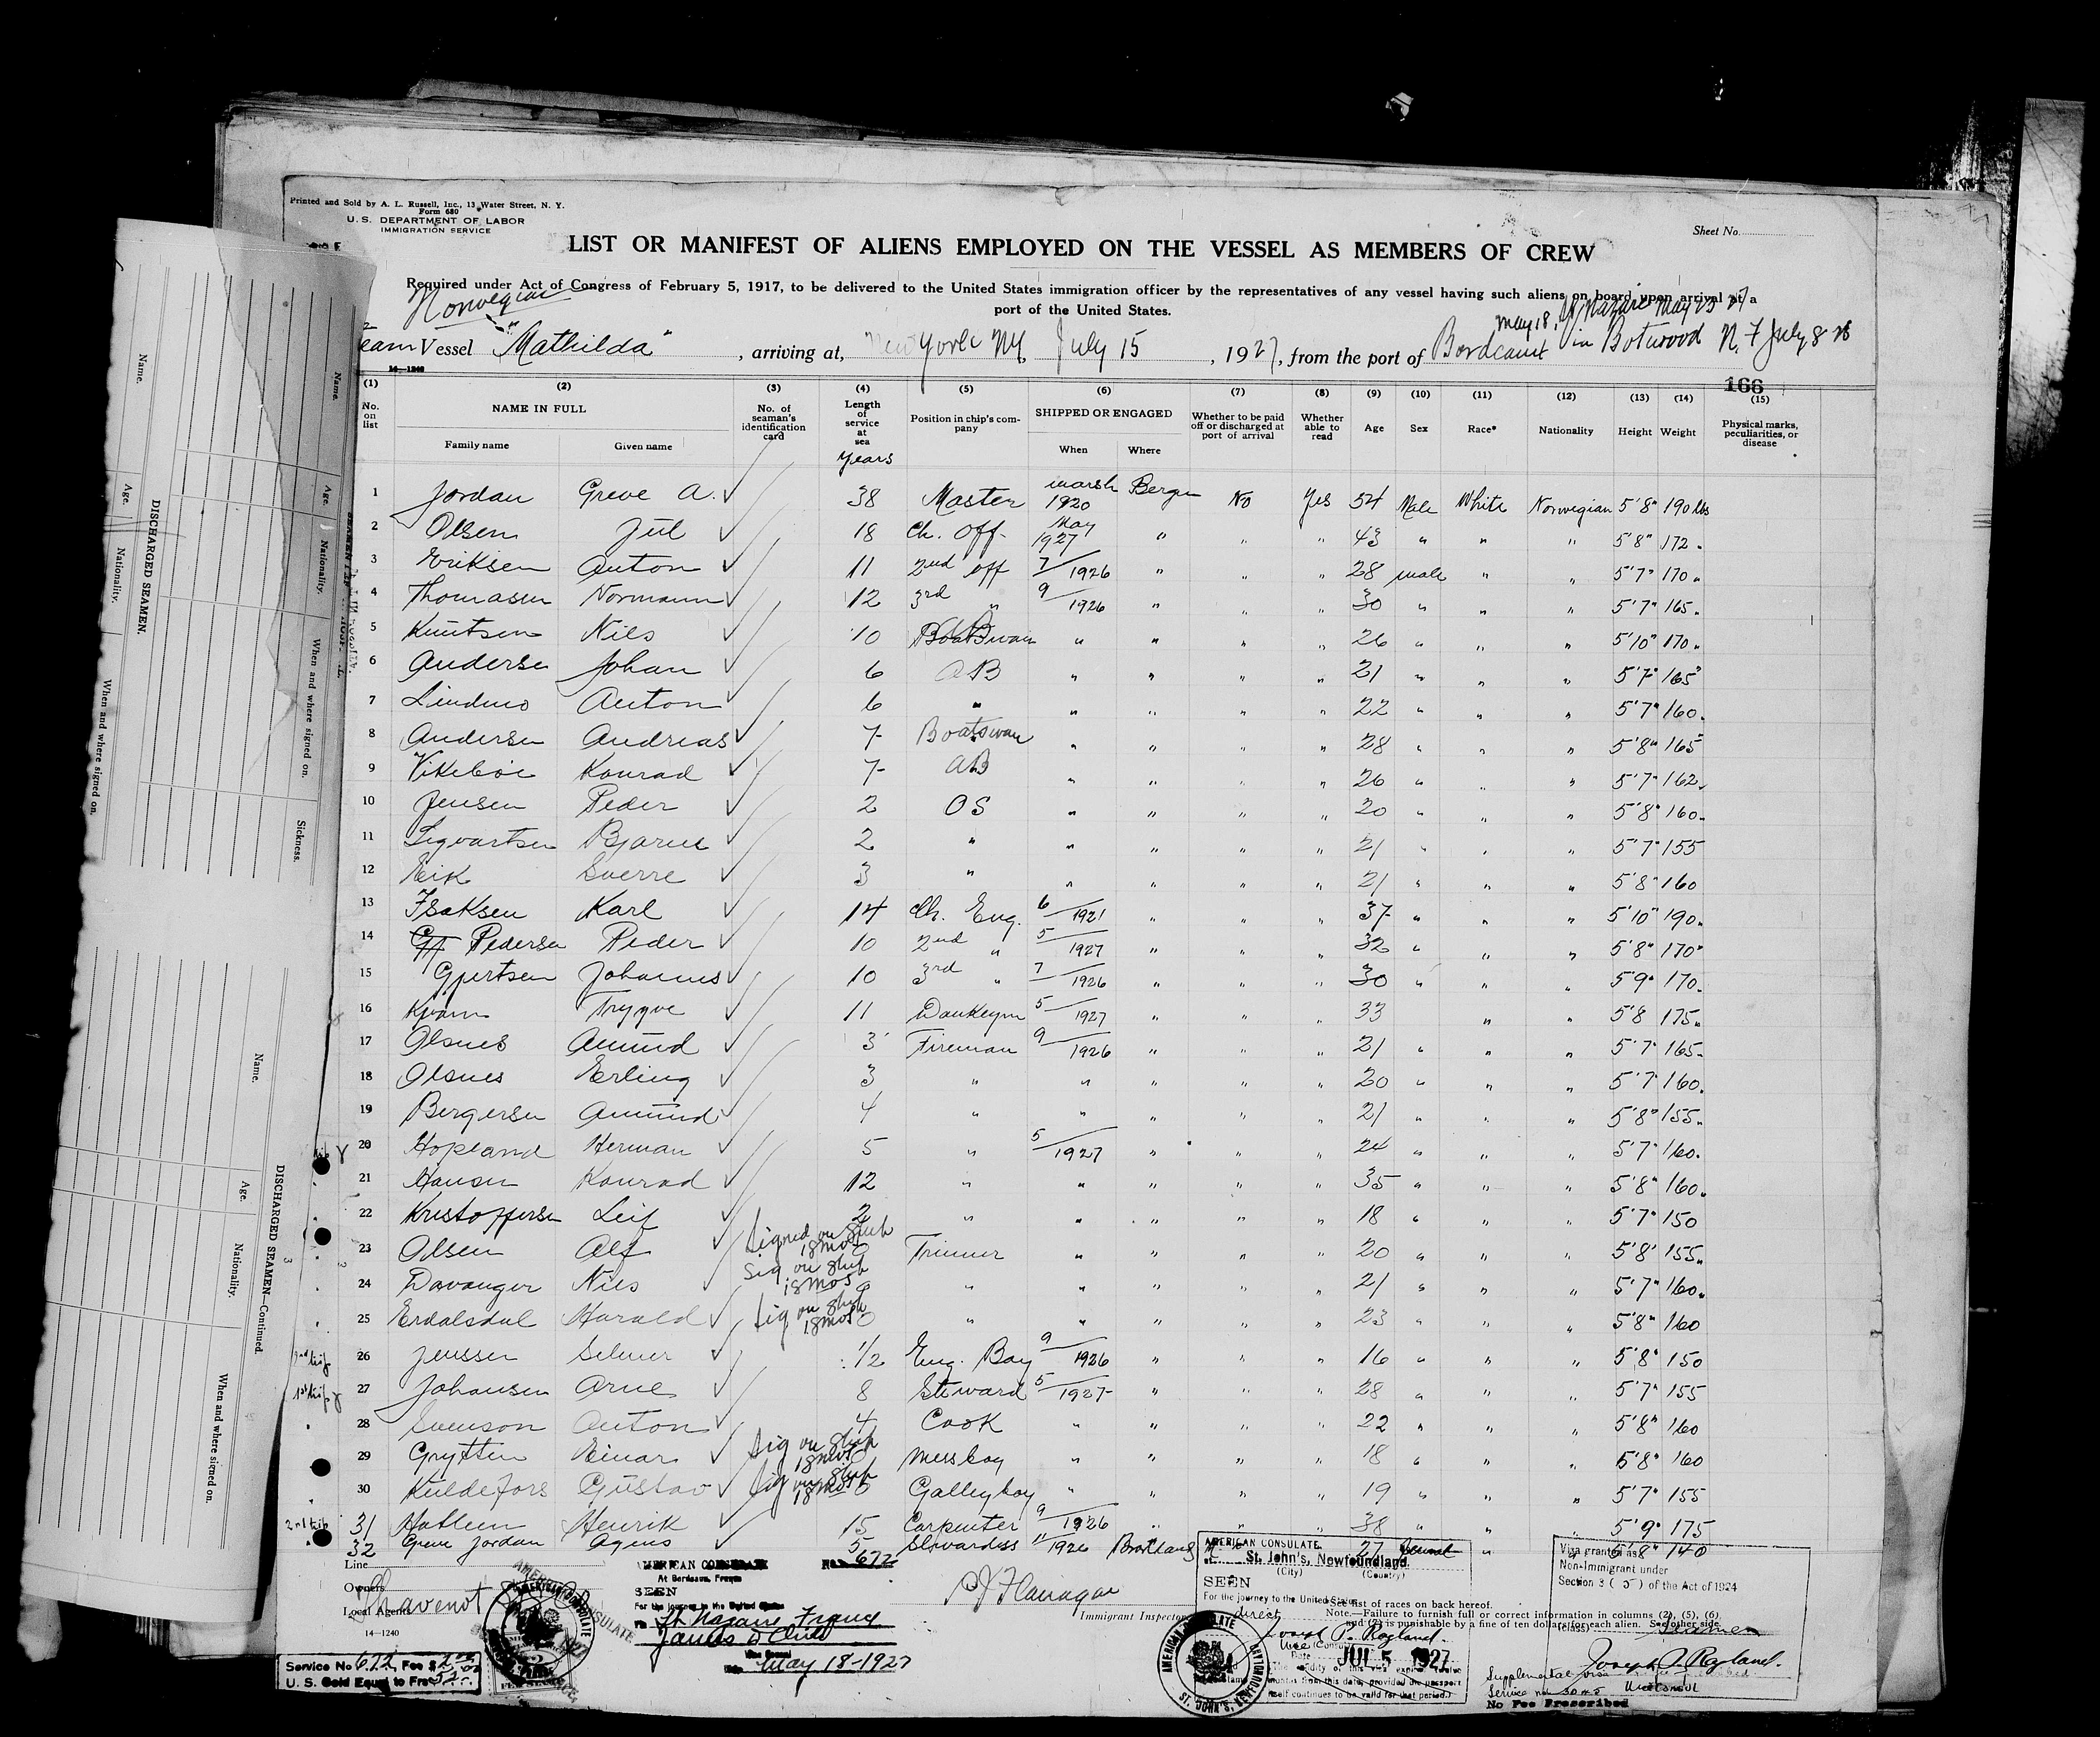 Printed and Sold by A. L. Russell, Inc., 13 Water Street, N. Y.
Form 680
U. S. DEPARTMENT OF LABOR
IMMIGRATION SERVICE
Sheet No.
LIST OR MANIFEST OF ALIENS EMPLOYED ON THE VESSEL AS MEMBERS OF CREW
Required under Act of Congress of February 5, 1917, to be delivered to the United States immigration officer by the representatives of any vessel having such aliens on board upon arrival at a
port of the United States.
Norwegian
May 18, St Nazaire May 23 27
eam Vessel "Mathilda", arriving at, New York NY, July 15, 1927, from the port of Bordeaux via Botwood N. F July 8
14—1240
166
(1) (2) (3) (4) (5) (6) (7) (8) (9) (10) (11) (12) (13) (14) (15)
No. on list NAME IN FULL Family name Given name No. of seaman's identification card Length of service at sea years Position in ship's company SHIPPED OR ENGAGED When Where Whether to be paid off or discharged at port of arrival Whether able to read Age Sex Race* Nationality Height Weight Physical marks, peculiarities, or disease
1 Jordan Greve A. 38 Master marsh 1920 Bergen No Yes 54 Male White Norwegian 5'8" 190 lbs
2 Olsen Jul 18 Ch. Off. May 1927 " " " 43 " " " 5'8" 172 "
3 Eriksen Anton 11 2nd off 7/1926 " " " 28 male " " 5'7" 170 "
4 Thomasen Normann 12 3rd " 9/1926 " " " 30 " " " 5'7" 165 "
5 Knutsen Nils 10 Boatswan " " " " 26 " " " 5'10" 170 "
6 Andersen Johan 6 AB " " " " 21 " " " 5'7" 165 "
7 Lindmo Anton 6 " " " " " 22 " " " 5'7" 160 "
8 Andersen Andreas 7 Boatswan " " " " 28 " " " 5'8" 165 "
9 Vikeböe Konrad 7 AB " " " " 26 " " " 5'7" 162 "
10 Jensen Peder 2 OS " " " " 20 " " " 5'8" 160 "
11 Sigvartsen Bjarne 2 " " " " " 21 " " " 5'7" 155
12 Eik Sverre 3 " " " " " 21 " " " 5'8" 160
13 Isaksen Karl 14 Ch. Eng. 6/1921 " " " 37 " " " 5'10" 190 "
14 Pedersen Peder 10 2nd " 5/1927 " " " 32 " " " 5'8" 170 "
15 Gjertsen Johannes 10 3rd " 7/1926 " " " 30 " " " 5'9" 170 "
16 Kvam Trygve 11 Donkeym 5/1927 " " " 33 " " 5'8 175 "
17 Olsnes Amund 3 Fireman 9/1926 " " " 21 " " " 5'7" 165 "
18 Olsnes Erling 3 " " " " " 20 " " " 5'7" 160 "
19 Bergersen Amund 4 " " " " " 21 " " " 5'8" 155 "
20 Hopland Herman 5 " 5/1927 " " " 24 " " " 5'7" 160 "
21 Hansen Konrad 12 " " " " " 35 " " " 5'8" 160 "
22 Kristoffersen Leif 2 " " " " " 18 " " " 5'7" 150
23 Olsen Alf Signed on ship 18 mos 0 Trimmer " " " " 20 " " " 5'8" 155 "
24 Davanger Nils Sig on ship 18 mos " " " " " 21 " " " 5'7" 160 "
25 Erdalsdal Harald Sig on ship 18 mos 0 " " " " " 23 " " " 5'8" 160
2nd trip 26 Jenssen Selmer 1/2 Eng. Boy 9/1926 " " " 16 " " " 5'8" 150
1st trip 27 Johansen Arne 8 Steward 5/1927 " " " 28 " " " 5'7" 155
28 Svenson Anton 4 Cook " " " " 22 " " " 5'8" 160
29 Grytten Einar Sig on ship 18 mos 0 Messboy " " " " 18 " " " 5'8" 160
30 Kuldefors Gustav Sig on ship 18 mos 0 Galleyboy " " " " 19 " " " 5'7" 155
2nd trip 31 Hatlem Henrik 15 Carpenter 9/1926 " " " 38 " " " 5'9" 175
32 Greve Jordan Agnes 5 Stewardess 11/1926 27 " " 5'8" 140
Line
Owners
Local Agents
14—1240
AMERICAN CONSULATE
At Bordeaux, France
SEEN
For the journey to the United States
Via St. Nazaire France
May 18-1927
No. 672
Service No. 672, Fee $
U. S. Gold Equal to Frs.
P J Flanagan
Immigrant Inspector
AMERICAN CONSULATE
St. John's, Newfoundland.
(City) (Country)
SEEN
For the journey to the United States
direct
Joseph P. Ragland.
Vice Consul
Date JUL 5 1927
The validity of this visa expires twelve months from this date, provided the passport itself continues to be valid for that period.)
AMERICAN CONSULATE ST. JOHN'S, NEWFOUNDLAND
See list of races on back hereof.
Note.—Failure to furnish full or correct information in columns (2), (5), (6), and (7) is punishable by a fine of ten dollars for each alien. See other side.
Visa granted as
Non-Immigrant under
Section 3 (5) of the Act of 1924
Seamen
Joseph P. Ragland.
Vice Consul
Supplemental visa
Service no. 3045
No Fee Prescribed
DISCHARGED SEAMEN.
Name. Age. Nationality. When and where signed on.
Name. Age. Nationality. When and where signed on. Sickness.
DISCHARGED SEAMEN—Continued.
Name. Age. Nationality. When and where signed on.
3